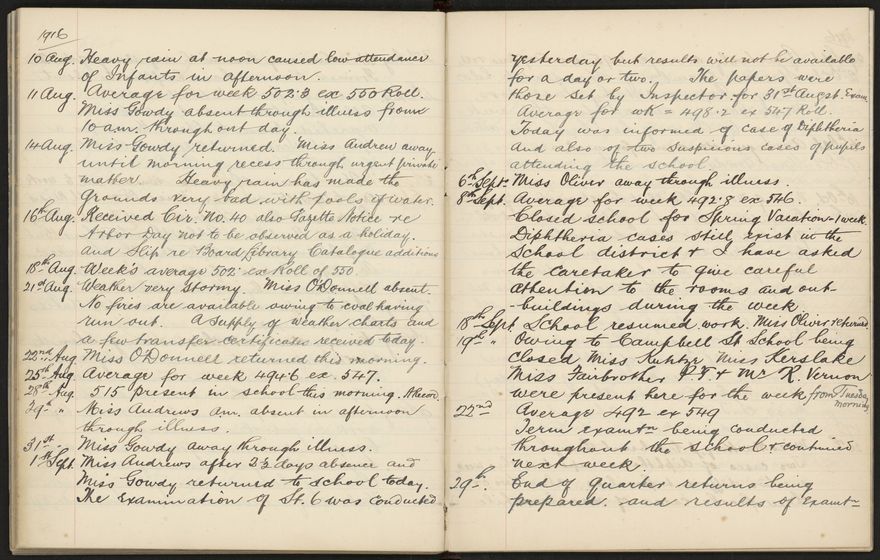 1916
10 Aug. Heavy rain at noon caused low attendance
of Infants in afternoon.
11 Aug. Average for week 502.3 ex 550 Roll.
Miss Gowdy absent through illness from
10 am. throughout day.
14 Aug. Miss Gowdy returned. Miss Andrew away
until morning recess through urgent private
matter. Heavy rain has made the
grounds very bad with pools of water.
16th Aug. Received Cir. No. 40 also Gazette Notice re
Arbor Day not to be observed as a holiday.
and Slip re Board Library Catalogue additions
18th Aug. Week's average 502 ex Roll of 550.
21st Aug. Weather very stormy. Miss O'Donnell absent.
No fires are available owing to coal having
run out. A supply of weather charts and
a few transfer certificates received today.
22nd Aug. Miss O'Donnell returned this morning.
25th Aug. Average for week 494.6 ex. 547.
28th Aug. 515 present in school this morning. A Record.
29th " Miss Andrews Am. absent in afternoon
through illness.
31st " Miss Gowdy away through illness.
1st Sept. Miss Andrews after 2½ days absence and
Miss Gowdy returned to school today.
The Examination of St. 6 was conducted
yesterday but results will not be available
for a day or two. The papers were
those set by Inspector for 31st Augst. Exam
Average for wk = 498.2 ex 547 Roll.
Today was informed of case of Diphtheria
and also of two suspicious cases of pupils
attending the school.
6th Sept. Miss Oliver away through illness.
8th Sept. Average for week 492.8 ex 546.
Closed school for Spring Vacation - 1 week.
Diphtheria cases still exist in the
School district & I have asked
the caretaker to give careful
attention to the rooms and out
-buildings during the week
18th Sept. School resumed work. Miss Oliver returned
19th " Owing to Campbell St School being
closed Miss Kuhtze Miss Kerslake
Miss Fairbrother P.T. & Mr R. Vernon
were present here for the week from Tuesday
morning
22nd Average 492 ex 549
Term examtn being conducted
throughout the school & continued
next week.
29th. End of quarter returns being
prepared. and results of Examtn